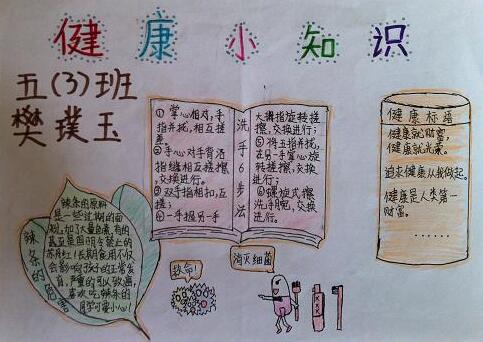 健康小知识
五(3)班
樊璞玉
① 掌心相对,手
指并拢,相互搓
搓。
②手心对手背沿
指缝相互搓擦,
交换进行;
③双手指相扣,互
搓;
④一手握另一手
洗手6步法
大拇指旋转搓
擦,交换进行;
⑤将五指并拢,
在另一手掌心旋
转搓擦,交换
进行;
⑥螺旋式擦
洗手腕,交换
进行。
健康标语
健康就财富,
健康就光荣。
追求健康从我做起。
健康是人类第一
财富。
......
辣条的危害
辣条的原料
是一些过期的面
粉,加了大量色素,有的
甚至是国明令禁止的
苏丹红!长期食用不仅
会影响孩子的正常发
育,严重的可以致癌,
喜欢吃辣条的
同学可要小心!
救命!
消灭细菌